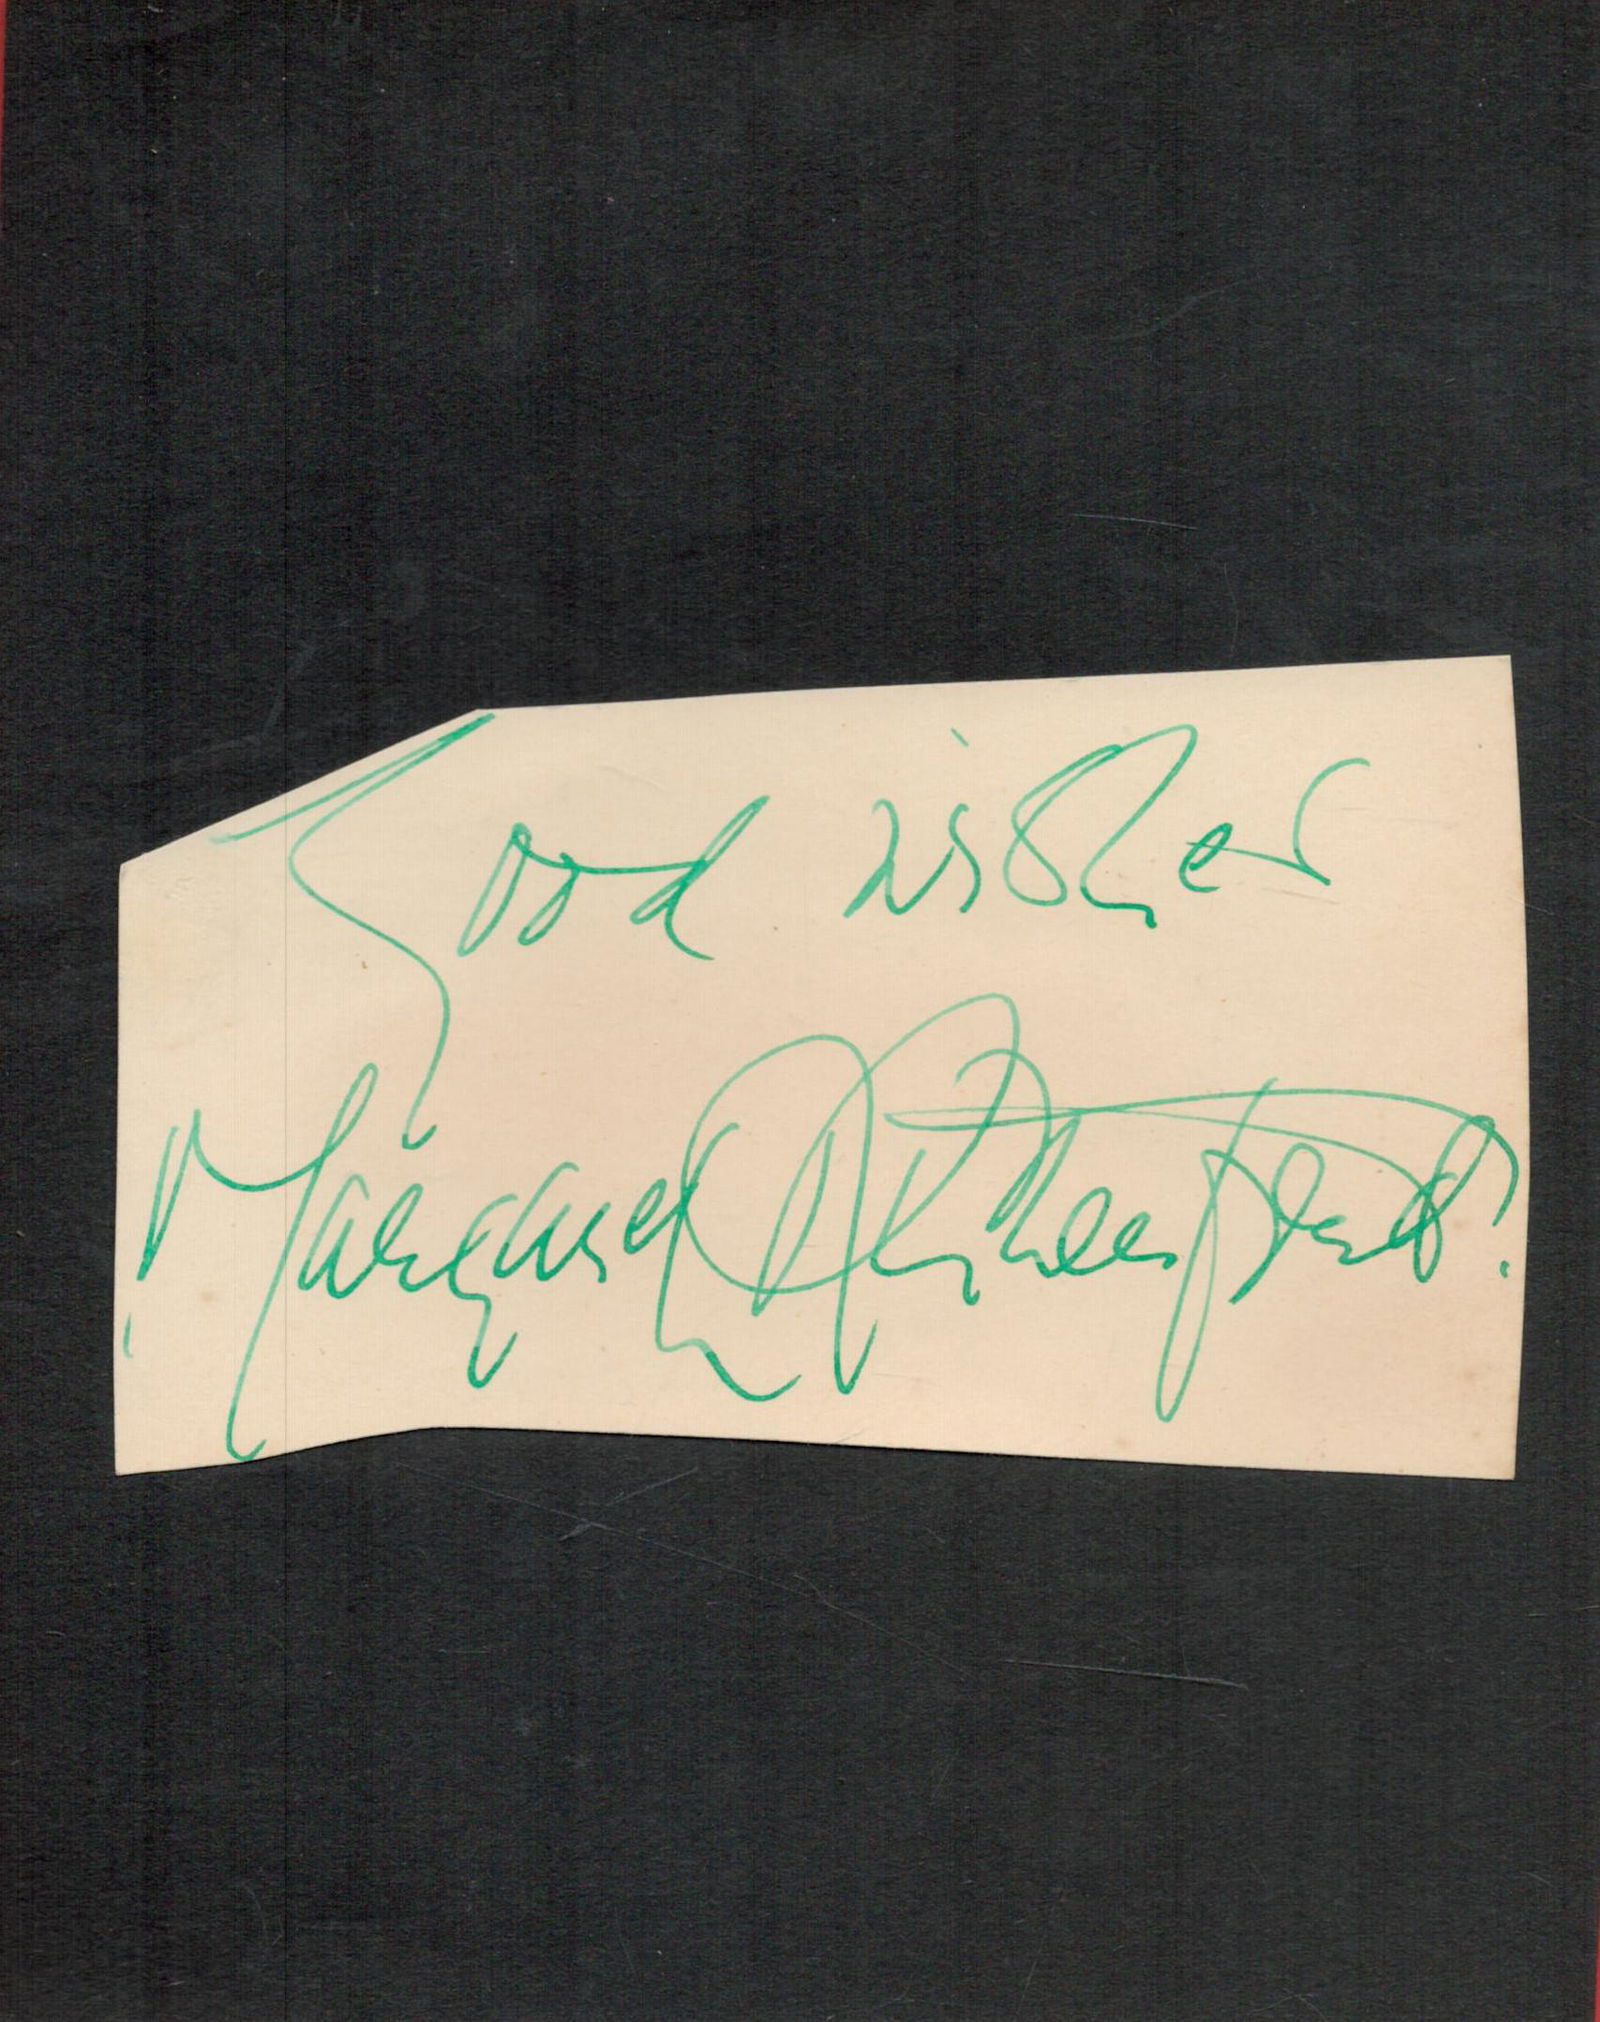 Good wishes
Margaret Rutherford